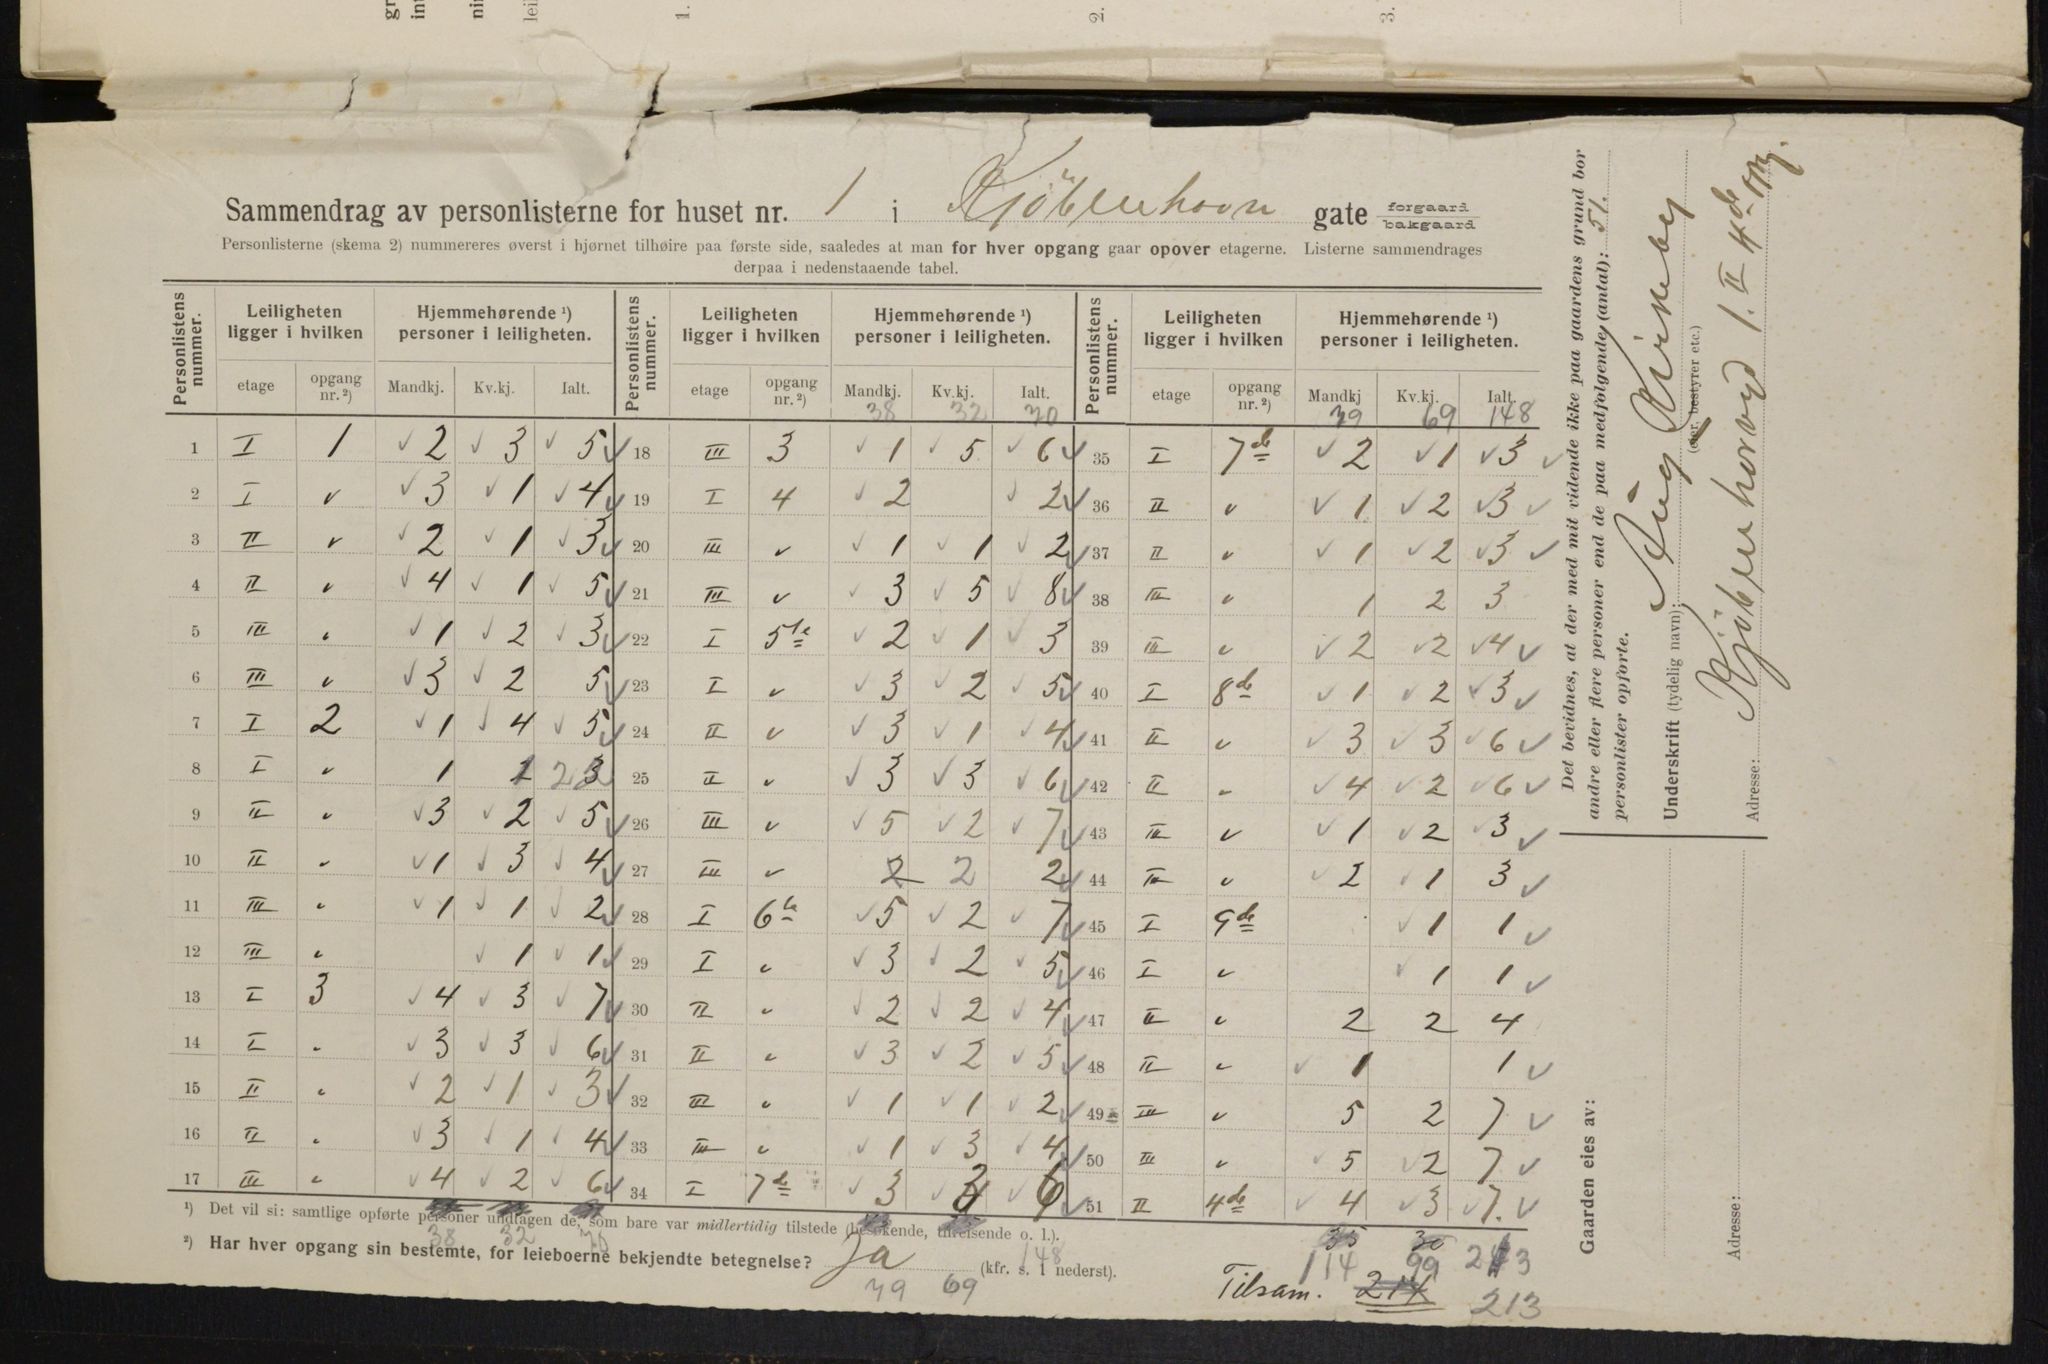 1.
2.
3.
Sammendrag av personlisterne for huset nr. 1 i Kjöbenhavn gate forgaard bakgaard
Personlisterne (skema 2) nummereres øverst i hjørnet tilhøire paa første side, saaledes at man for hver opgang gaar opover etagerne. Listerne sammendrages
derpaa i nedenstaaende tabel.
Personlistens nummer. Leiligheten ligger i hvilken Hjemmehørende ¹) personer i leiligheten. Personlistens nummer. Leiligheten ligger i hvilken Hjemmehørende ¹) personer i leiligheten. Personlistens nummer. Leiligheten ligger i hvilken Hjemmehørende ¹) personer i leiligheten.
etage opgang nr. ²) Mandkj. Kv.kj. Ialt. etage opgang nr. ²) Mandkj. Kv.kj. Ialt. etage opgang nr. ²) Mandkj Kv.kj. Ialt.
38 32 70 79 69 148
1 I 1 2 3 5 18 III 3 1 5 6 35 I 7de 2 1 3
2 I " 3 1 4 19 I 4 2 2 36 II " 1 2 3
3 II " 2 1 3 20 III " 1 1 2 37 II " 1 2 3
4 II " 4 1 5 21 III " 3 5 8 38 III " 1 2 3
5 III " 1 2 3 22 I 5te 2 1 3 39 III " 2 2 4
6 III " 3 2 5 23 I " 3 2 5 40 I 8de 1 2 3
7 I 2 1 4 5 24 II " 3 1 4 41 II " 3 3 6
8 I " 1 1 2 25 II " 3 3 6 42 II " 4 2 6
9 II " 3 2 5 26 III " 5 2 7 43 III " 1 2 3
10 II " 1 3 4 27 III " 2 2 44 III " 2 1 3
11 III " 1 1 2 28 I 6te 5 2 7 45 I 9de 1 1
12 III " 1 1 29 I " 3 2 5 46 I " 1 1
13 I 3 4 3 7 30 II " 2 2 4 47 II " 2 2 4
14 I " 3 3 6 31 II " 3 2 5 48 II " 1 1
15 II " 2 1 3 32 III " 1 1 2 49 III " 5 2 7
16 II " 3 1 4 33 III " 1 3 4 50 III " 5 2 7
17 III " 4 2 6 34 I 7de 3 51 II 4de 4 3 7.
¹) Det vil si: samtlige opførte personer undtagen de, som bare var midlertidig tilstede (besøkende, tilreisende o. l.).
38 32 70 35 30
²) Har hver opgang sin bestemte, for leieboerne bekjendte betegnelse? Ja (kfr. s. 1 nederst).
148 114 99 213
79 69 Tilsam. 214 213
Det bevidnes, at der med mit vidende ikke paa gaardens grund bor
andre eller flere personer end de paa medfølgende (antal): 51.
personlister opførte.
Underskrift (tydelig navn): Aug Kirkeby
(eier, bestyrer etc.)
Adresse: Kjöbenhavngd 1. II 4de opg.
Gaarden eies av:
Adresse: